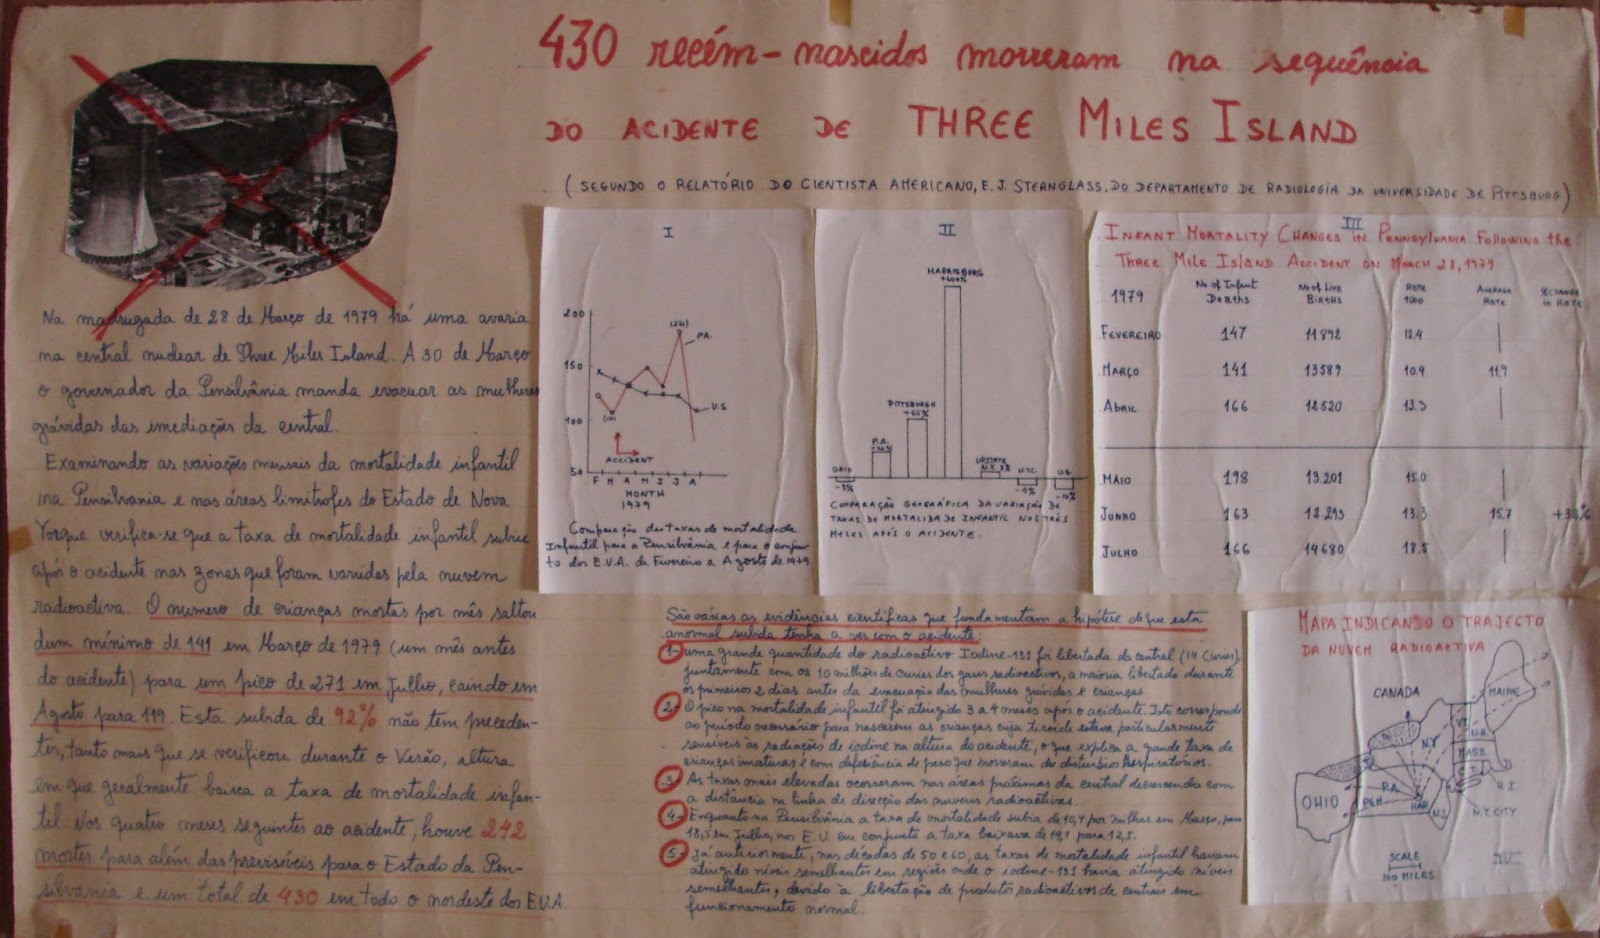 430 recém-nascidos morreram na sequência
DO ACIDENTE DE THREE MILES ISLAND
(SEGUNDO O RELATÓRIO DO CIENTISTA AMERICANO, E. J. STERNGLASS, DO DEPARTAMENTO DE RADIOLOGIA DA UNIVERSIDADE DE PITTSBURG)
Na madrugada de 28 de Março de 1979 há uma avaria
na central nuclear de Three Miles Island. A 30 de Março
o governador da Pensilvânia manda evacuar as mulheres
grávidas das imediações da central.
Examinando as variações mensais da mortalidade infantil
na Pensilvania e nas áreas limitrofes do Estado de Nova
Yorque verifica-se que a taxa de mortalidade infantil subiu
após o acidente nas zonas que foram varridas pela nuvem
radioactiva. O numero de crianças mortas por mês saltou
dum mínimo de 141 em Março de 1979 (um mês antes
do acidente) para um pico de 271 em Julho, caindo em
Agosto para 119. Esta subida de 92% não tem preceden-
tes, tanto mais que se verificou durante o Verão, altura
em que geralmente baixa a taxa de mortalidade infan-
til. Nos quatro meses seguintes ao acidente, houve 242
mortes para além das previsíveis para o Estado da Pen-
silvania e um total de 430 em todo o nordeste dos E.U.A.
I
200
150
100
50
(271)
PA.
U.S.
(141)
ACCIDENT
F M A M J J A
MONTH
1979
Comparação das taxas de mortalidade
Infantil para a Pensilvânia e para o conjun-
to dos E.U.A. de Fevereiro a Agosto de 1979
II
HARRISBURG
PITTSBURGH
P.A.
OHIO
UPSTATE
N.Y.
N.Y.C.
U.S.
COMPARAÇÃO GEOGRÁFICA DA VARIAÇÃO DE
TAXAS DE MORTALIDADE INFANTIL NOS TRÊS
MESES APÓS O ACIDENTE.
III
INFANT MORTALITY CHANGES IN PENNSYLVANIA FOLLOWING the
THREE MILE ISLAND ACCIDENT ON MARCH 28, 1979
1979 No of Infant Deaths No of Live Births RATE 1000 AVERAGE RATE % CHANGE in RATE
FEVEREIRO 147 11892 12.4
MARÇO 141 13589 10.4 11.7
ABRIL 166 12520 13.3
MAIO 198 13.201 15.0
JUNHO 163 12.293 13.3 15.7
JULHO 166 14680 18.5
São várias as evidências científicas que fundamentam a hipótese de que esta
anormal subida tenha a ver com o acidente:
1- uma grande quantidade do radioactivo Iodine-131 foi libertada da central (14 Curies),
juntamente com os 10 milhões de curies dos gases radioactivos, a maioria libertado durante
os primeiros 2 dias antes da evacuação das mulheres grávidas e crianças
2- O pico na mortalidade infantil foi atingido 3 a 4 meses após o acidente. Isto corresponde
ao período necessário para nascerem as crianças cuja tiroide estava particularmente
sensíveis às radiações de iodine na altura do acidente, o que explica a grande taxa de
crianças imaturas e com deficiência de peso que morreram de disturbios Respiratórios.
3- As taxas mais elevadas ocorreram nas áreas próximas da central decrescendo com
a distância na linha de direcção das nuvens radioactivas.
4- Enquanto na Pensilvânia a taxa de mortalidade subia de 10,4 por milhar em Março, para
18,5 em Julho, nos E.U. em conjunto a taxa baixava de 14,1 para 12,5.
5- Já anteriormente, nas décadas de 50 e 60, as taxas de mortalidade infantil haviam
atingido níveis semelhantes em regiões onde o iodine-131 havia atingido níveis
semelhantes, devido à libertação de produtos radioactivos de centrais em
funcionamento normal.
MAPA INDICANDO O TRAJECTO
DA NUVEM RADIOACTIVA
CANADA
MAINE
VT.
N.H.
N.Y
MASS.
C.T.
R.I.
P.A.
OHIO
HAR
N.J.
N.Y. CITY
SCALE
100 MILES
IV